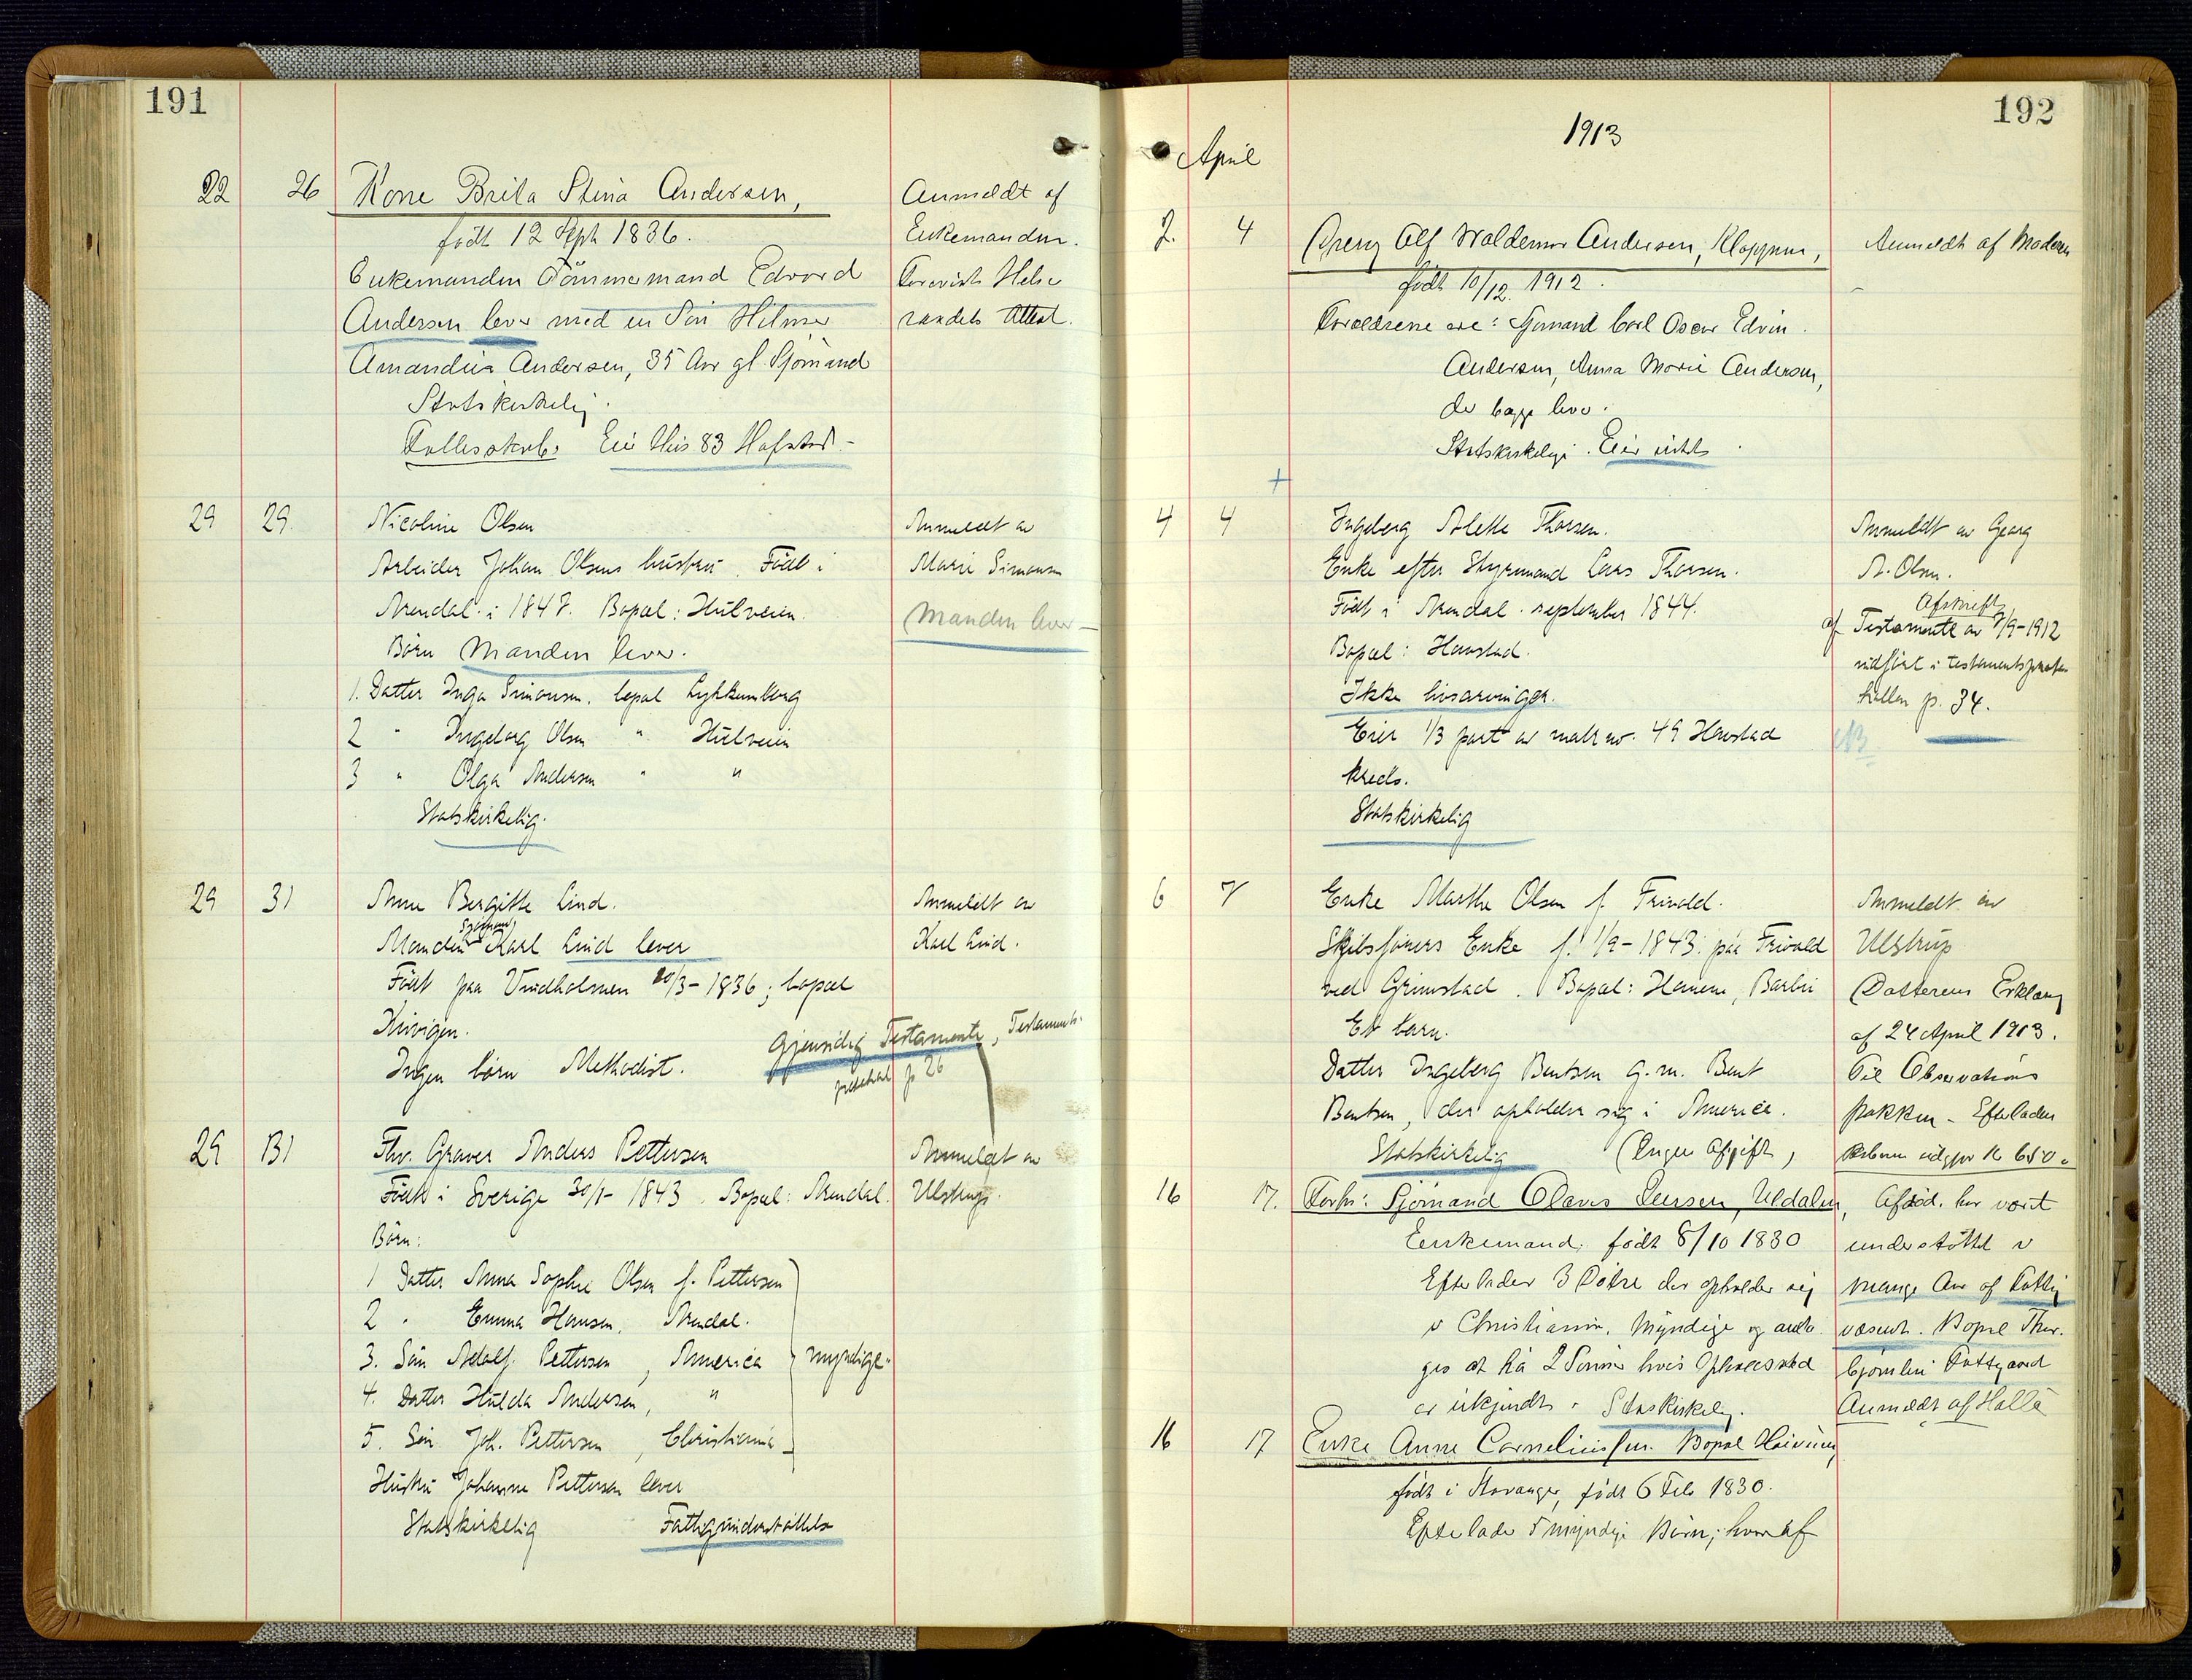 191
22 26 Kone Brita Stina Andersen,
født 12 Sept 1836.
Enkemanden Tømmermand Edvard
Andersen lever med en Søn Hilmer
Amandus Andersen, 35 Aar gl. Sjømand
Statskirkelig.
Fællesskab. Eier Hus 83 Hafstad.-
Anmeldt af
Enkemanden.
Forevist Helse
raadets Attest.
29 29. Nicoline Olsen
Arbeider Johan Olsens hustru. Født i
Arendal i 1847. Bopæl: Hulveien.
Børn Manden lever.
1. Datter Inga Simonsen, bopæl
2 " Ingeborg Olsen " Hulveien
3 " Olga Andersen " "
Statskirkelig.
Anmeldt av
Marie Simonsen
Manden lever –
29 31 Anne Bergitte Lind.
Sjømand
Manden Karl Lind lever
Født paa Vindholmen 20/3-1836; bopæl
Kivigen.
Ingen børn Methodist.
Gjensidig Testamente, Testaments-
protokol p 26
Anmeldt av
Karl Lind.
29 31 Fhv. Graver Anders Pettersen
Født i Sverige 30/1-1843. Bopæl: Arendal.
Børn:
1 Datter Anna Sophie Olsen f. Pettersen
2 " Emma Hansen, Arendal.
3. Søn Adolf Pettersen, America
myndige.
4. Datter Hulda Andersen, "
5. Søn Joh. Pettersen, Christiania
Hustru Johanne Pettersen lever
Statskirkelig Fattigunderstøttelse
Anmeldt av
Ulstrup.
192
1913
April
2. 4 Dreng Alf Waldemar Andersen, Kloppene,
født 10/12 1912.
Forældrene ere: Sjømand Carl Oscar Edvin
Andersen, Anna Marie Andersen,
der begge lever.
Statskirkelige. Eier intet.
Anmeldt af Moderen
+
4 4 Ingeborg Alette Thorsen.
Enke efter Styrmand Lars Thorsen.
Født i Arendal september 1844.
Bopæl: Havstad.
Ikke livsarvinger.
Eier 1/3 part av matr no. 49 Havstad
kreds.
Statskirkelig
Anmeldt av Georg
A. Olsen.
Afskrift
af Testamente av 7/9-1912
indført i testamentsproto-
kollen p. 34.
NB
6 7 Enke Marthe Olsen f. Trivold.
Skibsførers Enke f. 1/9-1843 paa Trivold
ved Grimstad. Bopæl: Havnene, Barbu
Et barn.
Datter Ingeborg Bentsen g.m. Bent
Bentsen, der opholder sig i America.
Statskirkelig (Ingen Afgift)
Anmeldt av
Ulstrup
Datterens Erklæring
af 24 April 1913.
Til Observations
pakken - Efterladen
skaben udgjør K 650.
16 17. Forhv: Sjømand Olaves Larsen, Uldalen,
Enkemand, født 8/10 1830
Efterlader 3 Døtre der opholder sig
i Christiania, Myndige og anta
ges at ha 2 Sønner hvis Opholdssted
er ukjendt. Statskirkelig.
Afdød. har været
understøttet i
mange Aar af Fattig
væsenet. Bopæl Thor-
bjørnlien Fattiggaard
Anmeldt af Holla
16 17 Enke Anne Corneliussen. Bopæl
født i Stavanger, født 6 Feb 1830.
Efterlader 5 myndige Børn, hvoraf